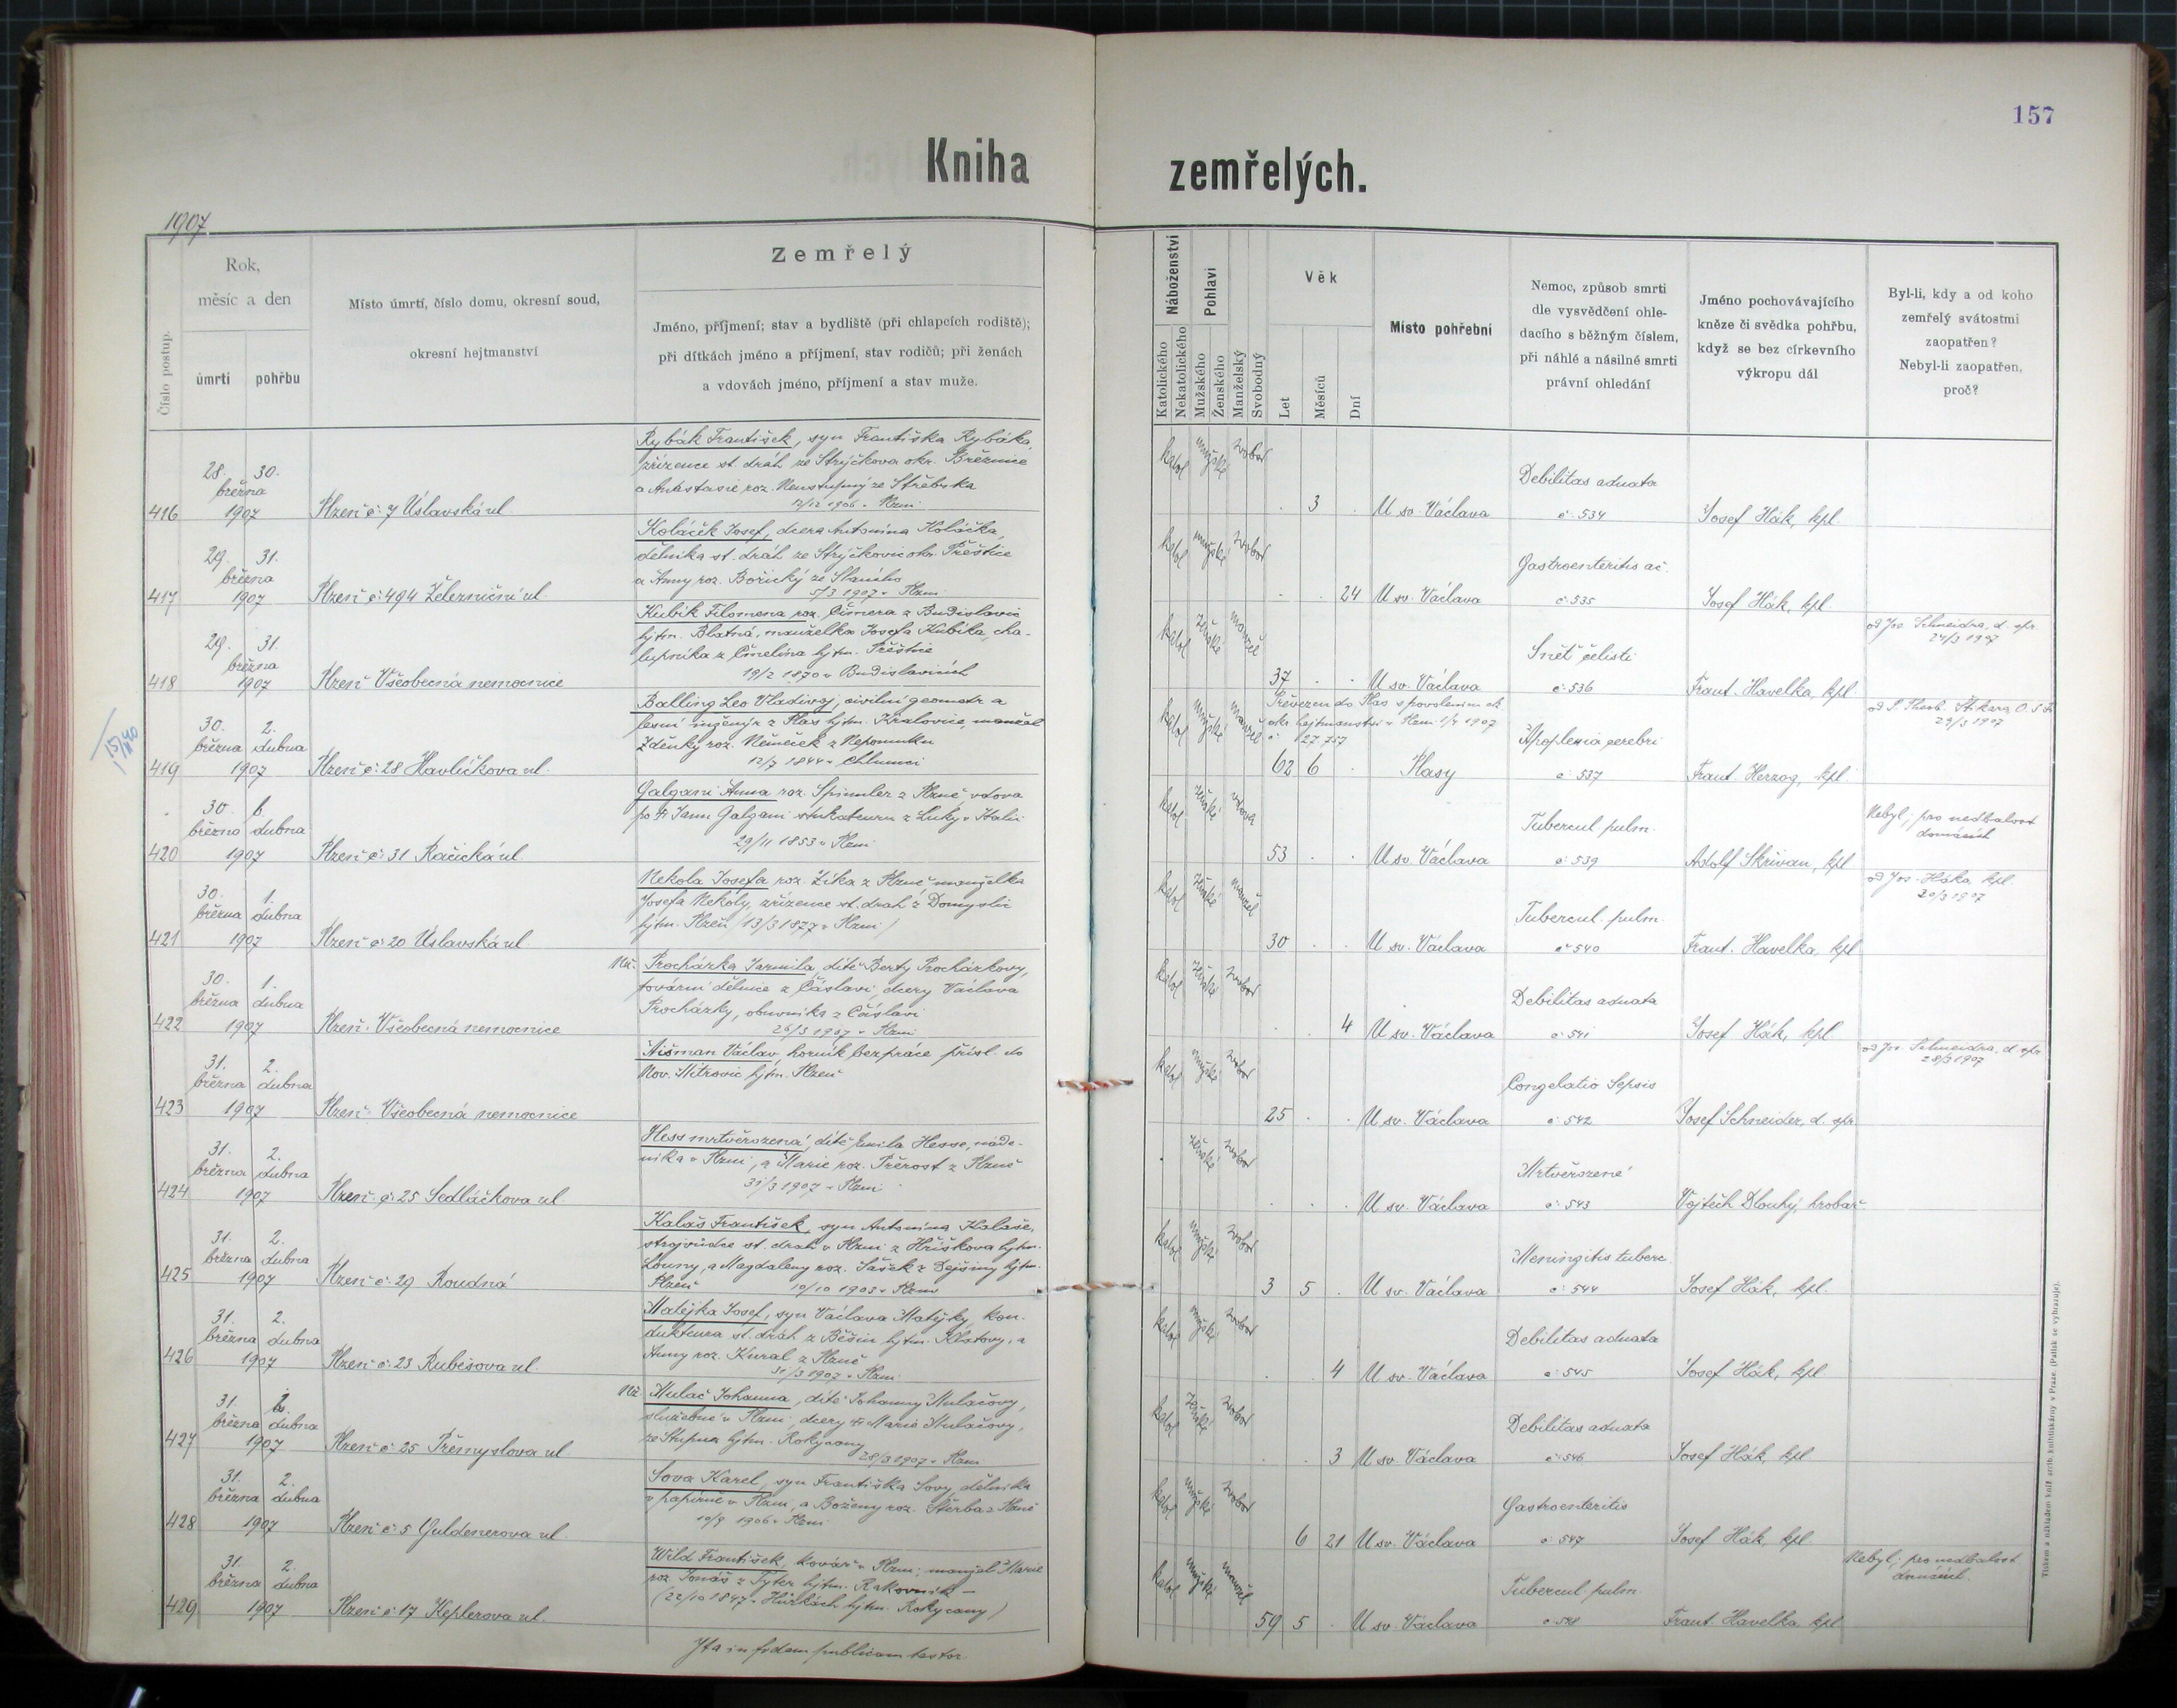 157
Kniha zemřelých.
1907
Číslo postup.
Rok,
měsíc a den
úmrtí
pohřbu
Místo úmrtí, číslo domu, okresní soud,
okresní hejtmanství
Zemřelý
Jméno, příjmení; stav a bydliště (při chlapcích rodiště);
při dítkách jméno a příjmení, stav rodičů; při ženách
a vdovách jméno, příjmení a stav muže.
Náboženství
Katolického
Nekatolického
Pohlaví
Mužského
Ženského
Manželský
Svobodný
Věk
Let
Měsíců
Dní
Místo pohřební
Nemoc, způsob smrti
dle vysvědčení ohle-
dacího s běžným číslem,
při náhlé a násilné smrti
právní ohledání
Jméno pochovávajícího
kněze či svědka pohřbu,
když se bez církevního
výkropu dál
Byl-li, kdy a od koho
zemřelý svátostmi
zaopatřen?
Nebyl-li zaopatřen,
proč?
416
28. 30.
března
1907
Plzeň č: 7 Úslavská ul.
Rybák František, syn Františka Rybáka,
zřízence st. drah ze Strýčkova okr. Březnice
a Anastasie roz. Neustupný ze Střebska
12/12 1906 v Plzni
katol mužské svobod
3
U sv. Václava
Debilitas adnata
č: 534
Josef Hák, kpl.
417
29. 31.
března
1907
Plzeň č: 494 Železniční ul.
Koláček Josef, dcera Antonína Koláčka,
dělníka st. drah ze Strýčkovic okr. Přeštice
a Anny roz. Bořický ze Slaného
5/3 1907 v Plzni
katol mužské svobod
24
U sv. Václava
Gastroenteritis ac.
č: 535
Josef Hák, kpl.
418
29. 31.
března
1907
Plzeň Všeobecná nemocnice
Kubík Filomena roz. Čismera z Budislavic
hjtm. Blatná, manželka Josefa Kubíka, cha-
lupníka z Čmelína hjtm. Přeštice
19/2 1870 v Budislavicích
katol ženské manžel
37
U sv. Václava
Sněť čelisti
č: 536
Frant. Havelka, kpl.
od Jos. Schneidra, d. spr.
24/3 1907
419
30. 2.
března dubna
1907
Plzeň č: 28 Havlíčkova ul.
Balling Leo Vladivoj, civilní geometr a
lesní inženýr z Plas hjtm. Kralovice, manžel
Zdeňky roz. Němeček z Nepomuku
12/7 1844 v Chlumci
katol mužské manžel
Převezen do Plas s povolením ck.
okr. hejtmanství v Plzni 1/4 1907
č: 27.757
62 6
Plasy
Apoplexia cerebri
č: 537
Frant. Herzog, kpl.
29/3 1907
420
30. 6.
března dubna
1907
Plzeň č: 31 Račická ul.
Galgani Anna roz. Spinnler z Plzně, vdova
po † Janu Galgani stukateuru z Luky v Italii
29/11 1853 v Plzni
katol ženské vdova
53
U sv. Václava
Tubercul. pulm.
č: 539
Adolf Skřivan, kpl
Nebyl, pro nedbalost
domácích
421
30. 1.
března dubna
1907
Plzeň č: 20 Úslavská ul.
Nekola Josefa roz. Žíka z Plzně, manželka
Josefa Nekoly, zřízence st. drah z Domyslic
hjtm. Plzeň (13/3 1877 v Plzni)
katol ženské manžel
30
U sv. Václava
Tubercul. pulm.
č: 540
Frant. Havelka, kpl
od Jos. Háka, kpl.
20/3 1907
422
30. 1.
března dubna
1907
Plzeň: Všeobecná nemocnice
Procházka Jarmila, dítě Berty Procházkovy,
tovární dělnice z Čáslavi, dcery Václava
Procházky, obuvníka z Čáslavi
26/3 1907 v Plzni
katol ženské svobod
4
U sv. Václava
Debilitas adnata
č: 541
Josef Hák, kpl.
423
31. 2.
března dubna
1907
Plzeň: Všeobecná nemocnice
Václav, horník bez práce přísl. do
Nov. Mitrovic hjtm. Plzeň
katol mužské svobod
25
U sv. Václava
Congelatio Sepsis
č: 542
Josef Schneider, d. spr
od Jos. Schneidra, d. spr.
28/3 1907
424
31. 2.
března dubna
1907
Plzeň č: 25 Sedláčkova ul.
Hess mrtvěrozená, dítě Emila Hesse, náde-
níka v Plzni, a Marie roz. Přerost z Plzně
31/3 1907 v Plzni
ženské svobod
U sv. Václava
Mrtvěrozené
č: 543
Vojtěch Dlouhý, hrobař
425
31. 2.
března dubna
1907
Plzeň č: 29 Roudná
Kalaš František, syn Antonína Kalaše,
strojvůdce st. drah v Plzni z Hříškova hjtm.
Louny, a Magdaleny roz. Sášek z Dejšiny hjtm.
Plzeň 10/10 1903 v Plzni
katol mužské svobod
3 5
U sv. Václava
Meningitis tuberc.
č: 544
Josef Hák, kpl.
426
31. 2.
března dubna
1907
Plzeň č: 23 Rubešova ul.
Matějka Josef, syn Václava Matějky, kon-
dukteura st. drah z Běšin hjtm. Klatovy, a
Anny roz. Kural z Plzně
31/3 1907 v Plzni
katol mužské svobod
4
U sv. Václava
Debilitas adnata
č: 545
Josef Hák, kpl.
427
31.
března dubna
1907
Plzeň č: 25 Přemyslova ul
Mulač Johanna, dítě Johanny Mulačovy,
služebné v Plzni, dcery † Marie Mulačovy,
ze Stupna hjtm. Rokycany
28/3 1907 v Plzni
katol ženské svobod
3
U sv. Václava
Debilitas adnata
č: 546
Josef Hák, kpl
428
31. 2.
března dubna
1907
Plzeň č: 5 Guldenerova ul.
Sova Karel, syn Františka Sovy, dělníka
v papírně v Plzni, a Boženy roz. Štěrba z Plzně
10/9 1906 v Plzni
katol mužské svobod
6 21
U sv. Václava
Gastroenteritis
č: 547
Josef Hák, kpl.
429
31. 2.
března dubna
1907
Plzeň č: 17 Keplerova ul.
Wild František, kovář v Plzni, manžel Marie
roz. Jonáš z Tyter hjtm. Rakovník –
(22/10 1847 v Hůrkách hjtm. Rokycany)
katol mužské manžel
59 5
U sv. Václava
Tubercul. pulm.
č: 548
Frant. Havelka, kpl.
Nebyl, pro nedbalost
domácích
Ita in fidem publicam testor
Tiskem a nákladem kníž. arcib. knihtiskárny v Praze. (Patisk se vyhrazuje).